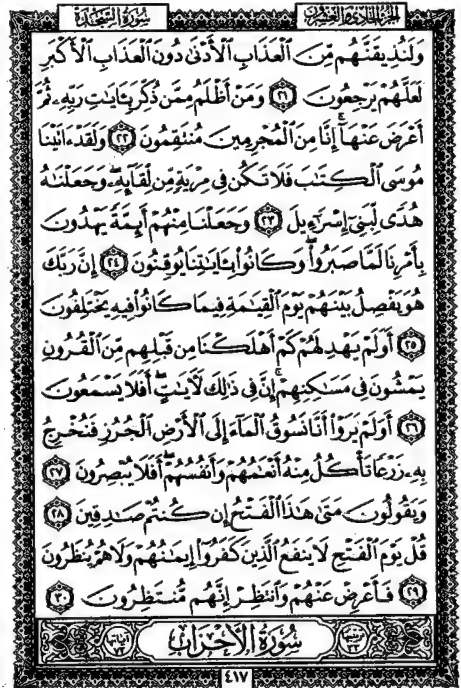 الجزء الحادي والعشرون سُورَةُ السَّجْدَةِ
وَلَنُذِيقَنَّهُم مِّنَ ٱلْعَذَابِ ٱلْأَدْنَىٰ دُونَ ٱلْعَذَابِ ٱلْأَكْبَرِ
لَعَلَّهُمْ يَرْجِعُونَ ٢١ وَمَنْ أَظْلَمُ مِمَّن ذُكِّرَ بِـَٔايَـٰتِ رَبِّهِۦ ثُمَّ
أَعْرَضَ عَنْهَآ ۚ إِنَّا مِنَ ٱلْمُجْرِمِينَ مُنتَقِمُونَ ٢٢ وَلَقَدْ ءَاتَيْنَا
مُوسَى ٱلْكِتَـٰبَ فَلَا تَكُن فِى مِرْيَةٍ مِّن لِّقَآئِهِۦ ۖ وَجَعَلْنَـٰهُ
هُدًى لِّبَنِىٓ إِسْرَٰٓءِيلَ ٢٣ وَجَعَلْنَا مِنْهُمْ أَئِمَّةً يَهْدُونَ
بِأَمْرِنَا لَمَّا صَبَرُوا۟ ۖ وَكَانُوا۟ بِـَٔايَـٰتِنَا يُوقِنُونَ ٢٤ إِنَّ رَبَّكَ
هُوَ يَفْصِلُ بَيْنَهُمْ يَوْمَ ٱلْقِيَـٰمَةِ فِيمَا كَانُوا۟ فِيهِ يَخْتَلِفُونَ
٢٥ أَوَلَمْ يَهْدِ لَهُمْ كَمْ أَهْلَكْنَا مِن قَبْلِهِم مِّنَ ٱلْقُرُونِ
يَمْشُونَ فِى مَسَـٰكِنِهِمْ ۚ إِنَّ فِى ذَٰلِكَ لَـَٔايَـٰتٍ ۖ أَفَلَا يَسْمَعُونَ
٢٦ أَوَلَمْ يَرَوْا۟ أَنَّا نَسُوقُ ٱلْمَآءَ إِلَى ٱلْأَرْضِ ٱلْجُرُزِ فَنُخْرِجُ
بِهِۦ زَرْعًا تَأْكُلُ مِنْهُ أَنْعَـٰمُهُمْ وَأَنفُسُهُمْ ۖ أَفَلَا يُبْصِرُونَ ٢٧
وَيَقُولُونَ مَتَىٰ هَـٰذَا ٱلْفَتْحُ إِن كُنتُمْ صَـٰدِقِينَ ٢٨
قُلْ يَوْمَ ٱلْفَتْحِ لَا يَنفَعُ ٱلَّذِينَ كَفَرُوٓا۟ إِيمَـٰنُهُمْ وَلَا هُمْ يُنظَرُونَ
٢٩ فَأَعْرِضْ عَنْهُمْ وَٱنتَظِرْ إِنَّهُم مُّنتَظِرُونَ ٣٠
ترتيبها ٣٣ سُورَةُ الأَحْزَابِ آياتها ٧٣
٤١٧